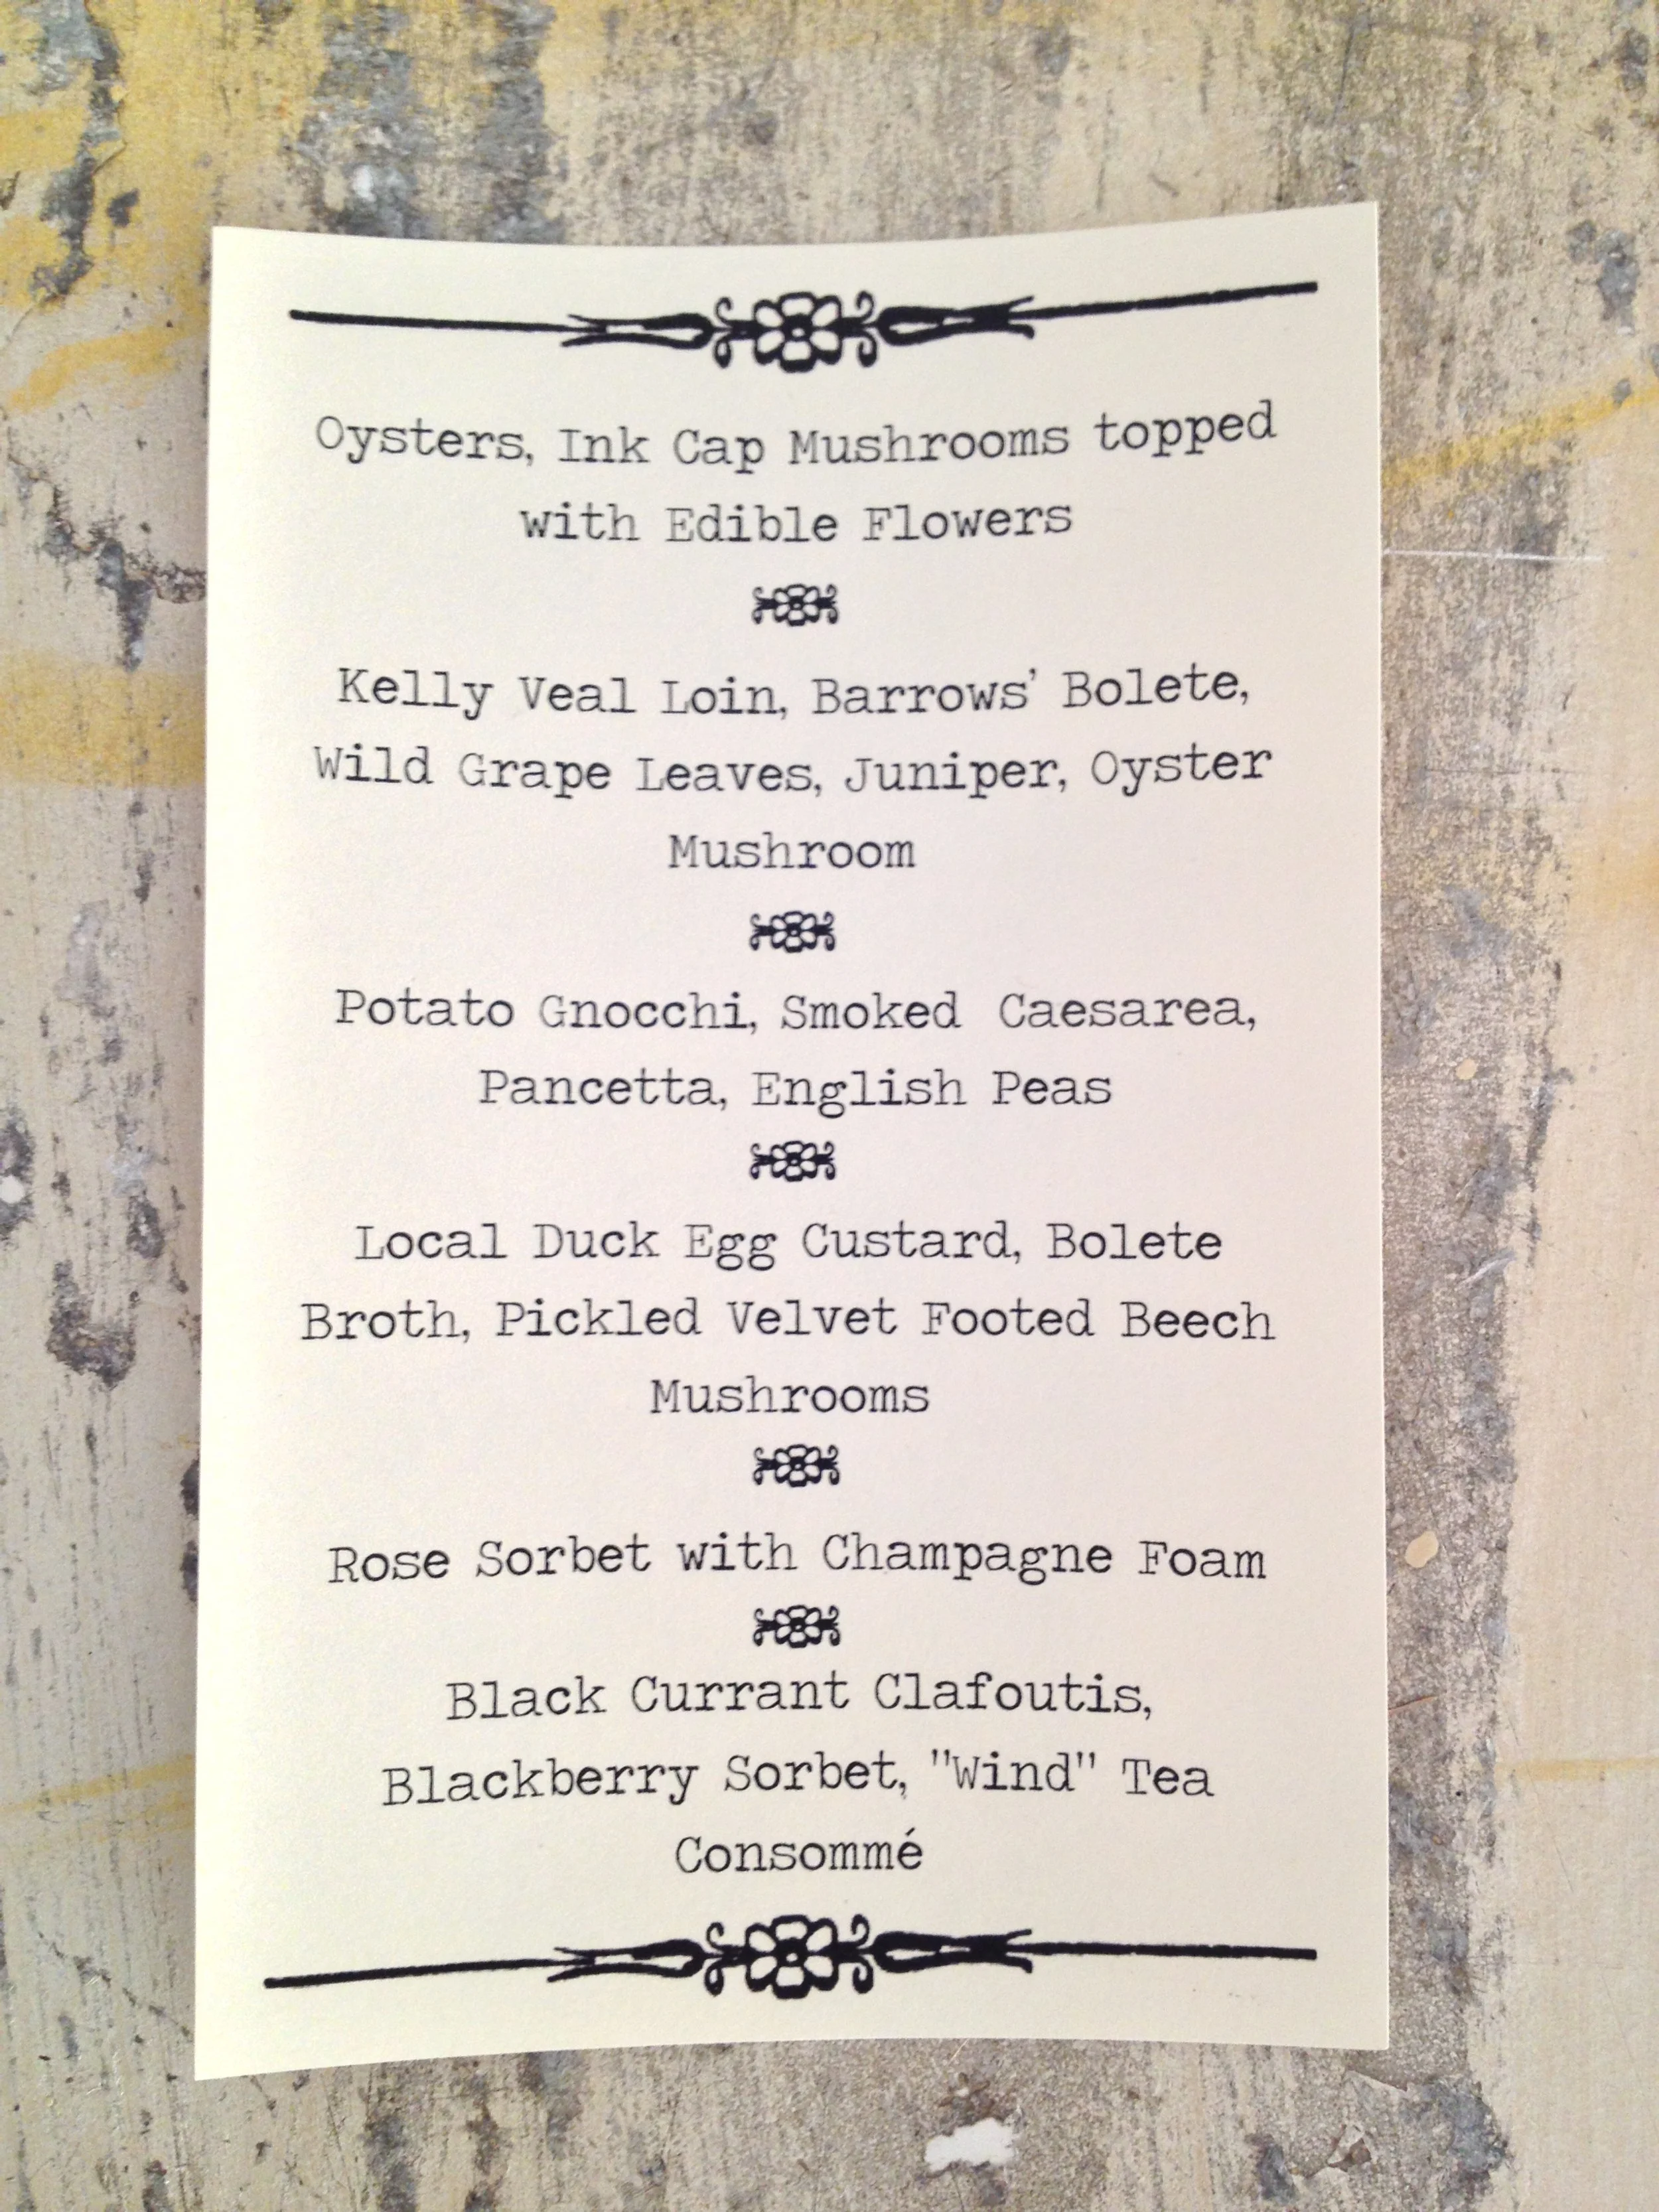 Oysters, Ink Cap Mushrooms topped
with Edible Flowers
Kelly Veal Loin, Barrows' Bolete,
Wild Grape Leaves, Juniper, Oyster
Mushroom
Potato Gnocchi, Smoked Caesarea,
Pancetta, English Peas
Local Duck Egg Custard, Bolete
Broth, Pickled Velvet Footed Beech
Mushrooms
Rose Sorbet with Champagne Foam
Black Currant Clafoutis,
Blackberry Sorbet, "Wind" Tea
Consommé